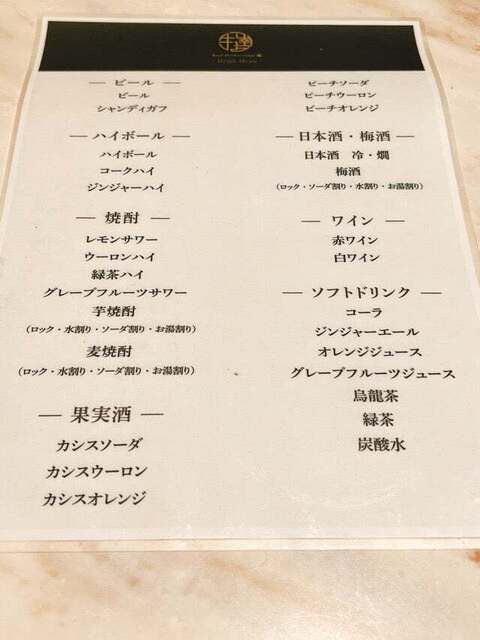 Drink Menu
― ビール ―
ビール
シャンディガフ
― ハイボール ―
ハイボール
コークハイ
ジンジャーハイ
― 焼酎 ―
レモンサワー
ウーロンハイ
緑茶ハイ
グレープフルーツサワー
芋焼酎
(ロック・水割り・ソーダ割り・お湯割り)
麦焼酎
(ロック・水割り・ソーダ割り・お湯割り)
― 果実酒 ―
カシスソーダ
カシスウーロン
カシスオレンジ
ピーチソーダ
ピーチウーロン
ピーチオレンジ
― 日本酒・梅酒 ―
日本酒 冷・燗
梅酒
(ロック・ソーダ割り・水割り・お湯割り)
― ワイン ―
赤ワイン
白ワイン
― ソフトドリンク ―
コーラ
ジンジャーエール
オレンジジュース
グレープフルーツジュース
烏龍茶
緑茶
炭酸水